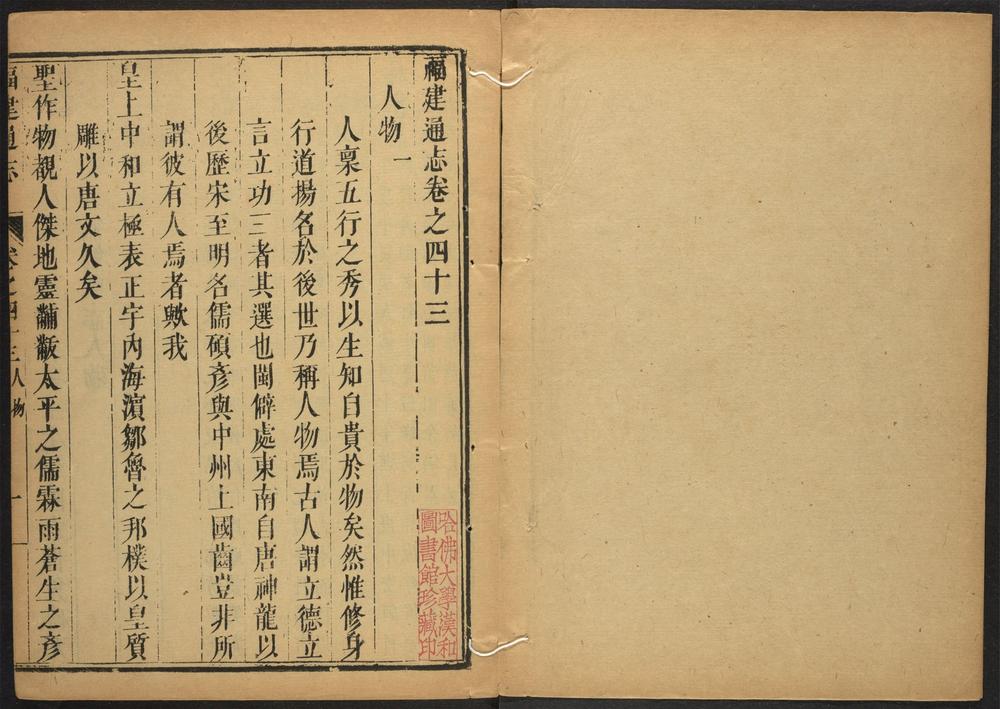 福建通志卷之四十三
人物一
人稟五行之秀以生知自貴於物矣然惟修身
行道揚名於後世乃稱人物焉古人謂立德立
言立功三者其選也閩僻處東南自唐神龍以
後歷宋至明名儒碩彥與中州上國齒豈非所
謂彼有人焉者歟我
皇上中和立極表正宇內海濱鄒魯之邦樸以皇質
雕以唐文久矣
聖作物覩人傑地靈黼黻太平之儒霖雨蒼生之彥
福建通志 卷之四十三人物 一
哈佛大學漢和
圖書館珍藏印